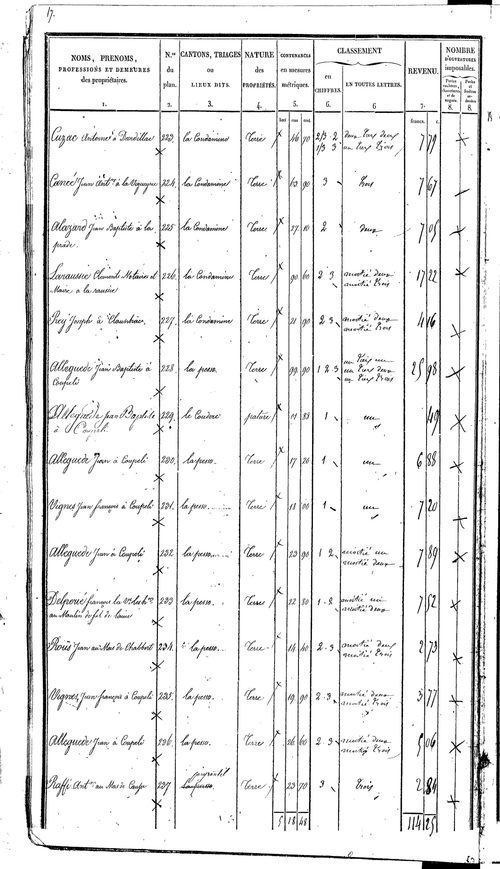 17.
NOMS, PRENOMS,
PROFESSIONS ET DEMEURES
des propriétaires.
1.
N.os
du
plan.
2.
CANTONS, TRIAGES
ou
LIEUX DITS.
3.
NATURE
des
PROPRIÉTÉS.
4.
CONTENANCES
en mesures
métriques.
5.
CLASSEMENT
en
CHIFFRES.
6.
EN TOUTES LETTRES.
6
REVENU.
7.
NOMBRE
D'OUVERTURES
imposables.
8.
8.
francs. c.
Cuzac Antoine à 223. la Condamine Terre 46 70 2/3 2 deux tiers deux 7 79
1/3 3 un tiers trois
Jean Ant.ne à la 224. la Condamine Terre 63 90 3 trois 7 67
Alazard Jean Baptiste à la 225 la Condamine Terre 27 10 2 deux 7 05
prade.
Larausie Clement Notaire et 226. la Condamine Terre 90 60 2 3 moitié deux 17 22
Maire à la rausie moitié trois
Prey Joseph à 227. la Condamine Terre 21 90 2 3 moitié deux 4 16
moitié trois
Alleguede Jean Baptiste à 228 la pesso. Terre 99 90 1 2 3 un tiers un 25 98
Coupeli un tiers deux
un tiers trois
Jean Baptiste 229. le Coudere pature 01 88 1 un 49
à Coupeli
Alleguede Jean à Coupeli 230. la pesso. Terre 17 20 1 un 6 88
Vignes Jean françois à Coupeli 231. la pesso. Terre 18 00 1 un 7 20
Alleguede Jean à Coupeli 232 la pesso. Terre 23 90 1 2 moitié un 7 89
moitié deux
Delpoué françois 233 la pesso. Terre 22 80 1 2 moitié un 7 52
au Moulin moitié deux
Rous Jean au Mas de Chabbert 234. la pesso. Terre 14 40 2 3 moitié deux 2 73
moitié trois
Vignes Jean françois à Coupeli 235. la pesso. Terre 19 90 2 3 moitié deux 3 77
moitié trois
Alleguede Jean à Coupeli 236. la pesso. Terre 26 60 2 3 moitié deux 5 06
moitié trois
Raffi Ant.ne au Mas de 237 Terre 23 70 3 trois 2 84
5 18 48 114 25